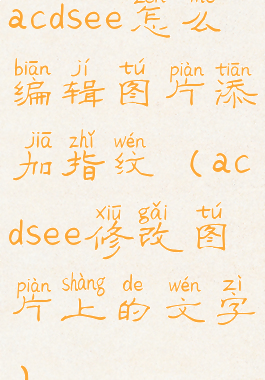 zěn me
acdsee怎么
biān jí tú piàn tiān
编辑图片添
jiā zhǐ wén
加指纹(ac
xiū gǎi tú
dsee修改图
piàn shàng de wén zì
片上的文字
)